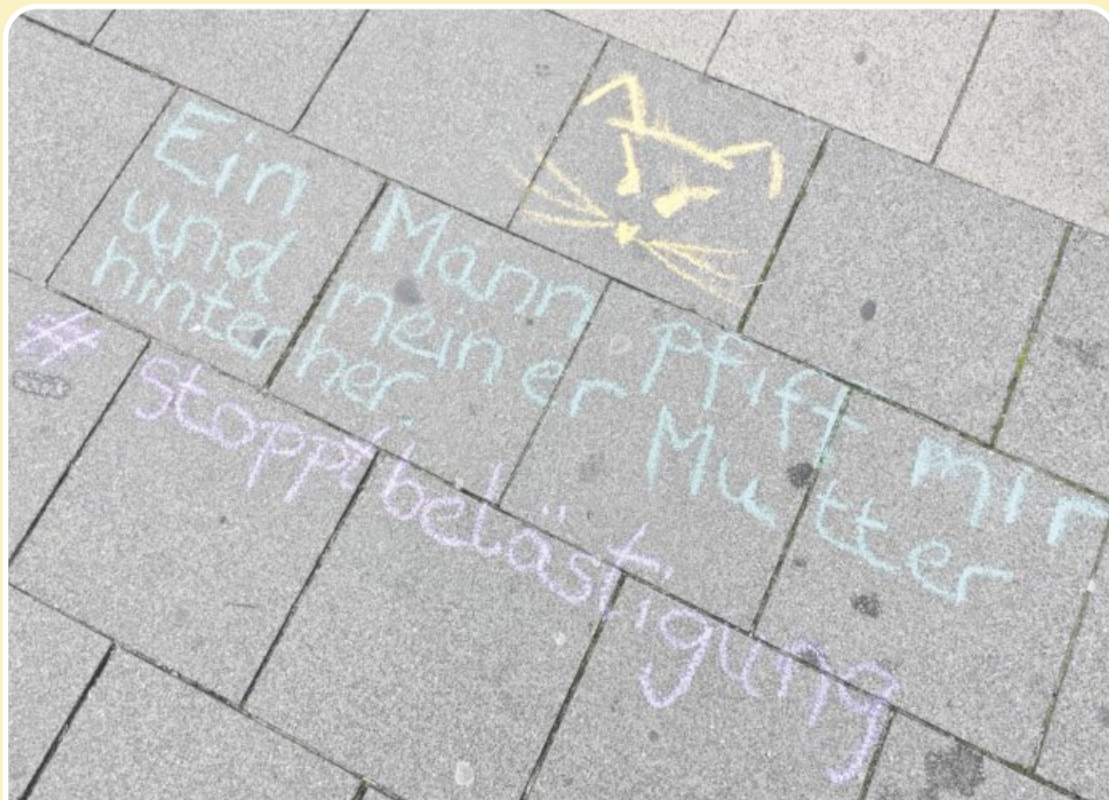 Ein Mann pfift mir
und meiner Mutter
hinterher.
#stopptbelästigung